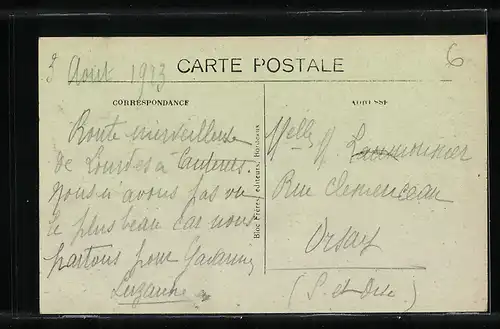 2 Août 1933
6
CARTE POSTALE
CORRESPONDANCE
ADRESSE
Route merveilleuse
de Lourdes à Cauterets.
Nous n'avons pas vu
le plus beau car nous
partons pour Gavarnie
Suzanne
Bloc Frères, éditeurs, Bordeaux
Melle
Rue Clemenceau
Orsay
(S. et Oise.)